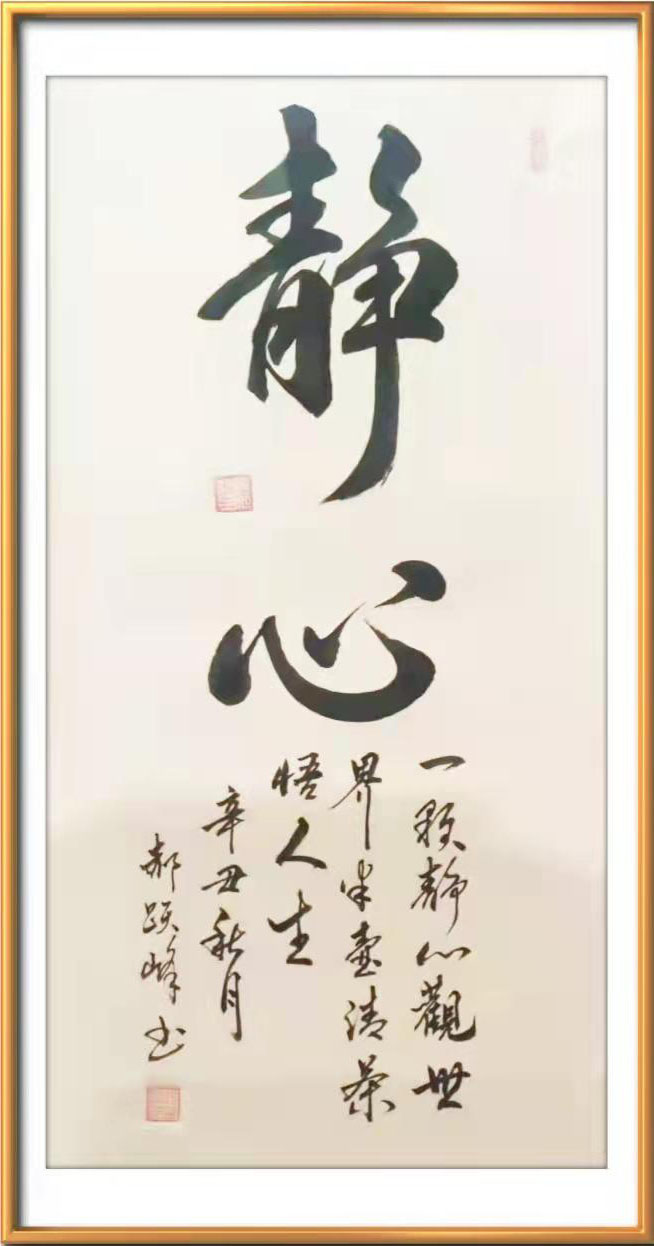 静心
一颗静心觀世
界半壶清茶
悟人生
辛丑秋月
郝跃峰书